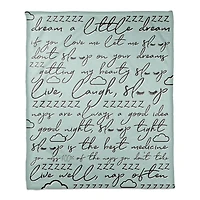 zzzzz a little dream
if you love me let me sleep
don't sleep on your dreams
getting my beauty sleep
live, laugh, sleep
zzzzzzzzzzzzzzz
naps are always a good idea
good night, sleep tight
sleep is the best medicine
you miss of the naps you don't take
live well nap often
zzzzzzzzzzzzz